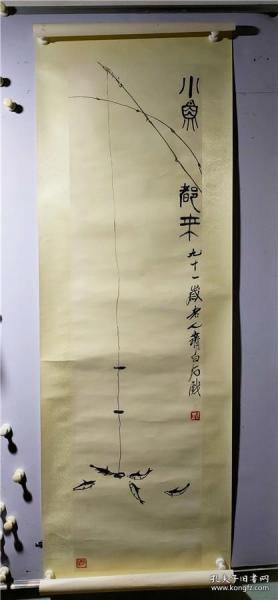 小魚
都来
九十一歲老人齊白石戲
孔夫子旧书网